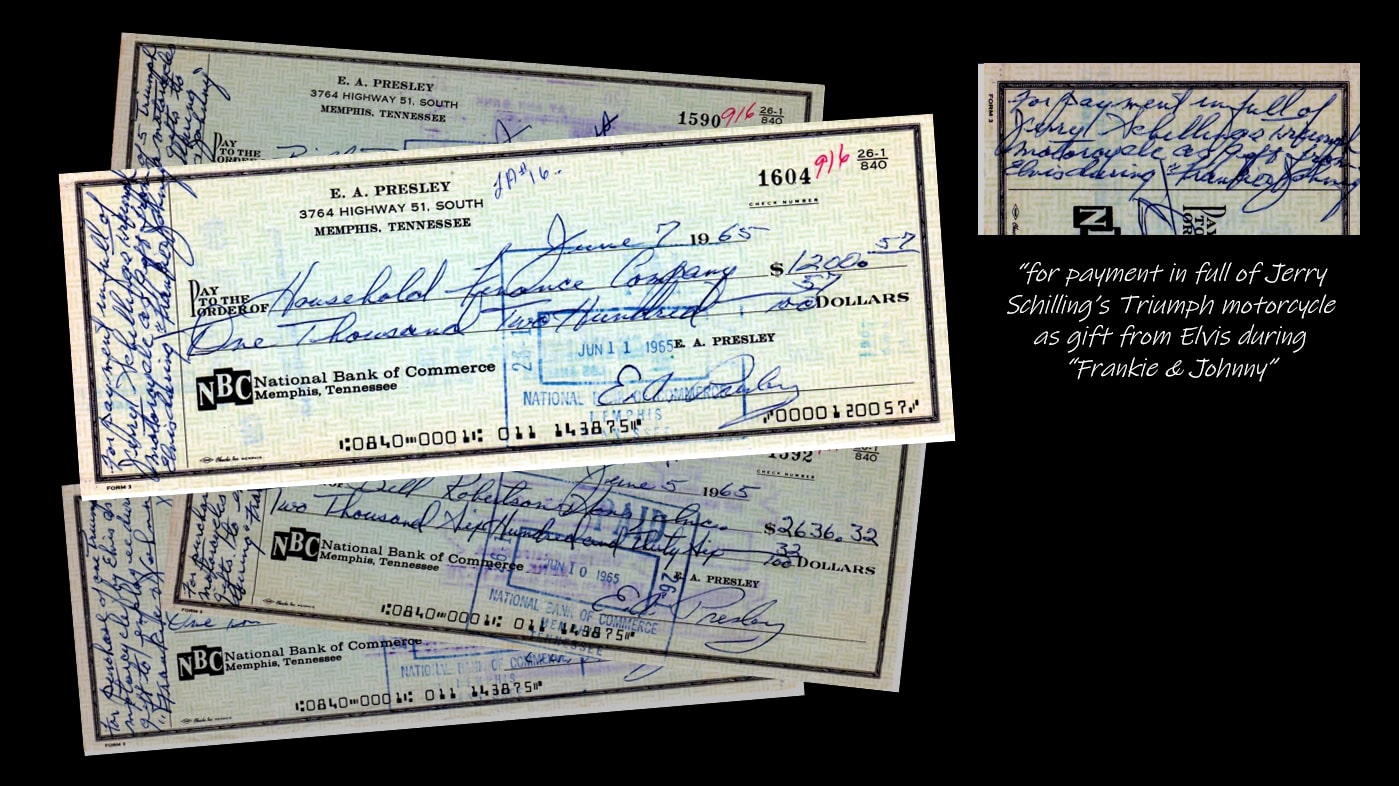 E. A. PRESLEY
3764 HIGHWAY 51, SOUTH
MEMPHIS, TENNESSEE
1590 916 26-1
840
PAY
TO THE
ORDER
E. A. PRESLEY
3764 HIGHWAY 51, SOUTH
MEMPHIS, TENNESSEE
1604 916 26-1
840
CHECK NUMBER
June 7 1965
PAY
TO THE
ORDER OF Household Finance Company $1200.57
One Thousand Two Hundred 57/100 DOLLARS
JUN 11 1965
E. A. PRESLEY
NBC National Bank of Commerce
Memphis, Tennessee
NATIONAL BANK OF COMMERCE
MEMPHIS
TENNESSEE
E.A. Presley
⑆0840⑉0001⑆ 011 143875⑈ ⑈0000120057⑈
FORM 3
for payment in full of
Jerry Schilling's triumph
motorcycle as gift from
Elvis during "Frankie & Johnny
1592
840
CHECK NUMBER
June 5 1965
Bill Robertson & Sons, Inc. $2636.32
Two Thousand Six Hundred and Thirty Six 32/100 DOLLARS
PAID
JUN 10 1965
E. A. PRESLEY
NBC National Bank of Commerce
Memphis, Tennessee
NATIONAL BANK OF COMMERCE
MEMPHIS
TENNESSEE
E.A. Presley
⑆0840⑉0001⑆ 011 143875⑈
NBC National Bank of Commerce
Memphis, Tennessee
NATIONAL BANK OF COMMERCE
MEMPHIS
⑆0840⑉0001⑆ 011 143875⑈
FORM 3
FORM 3
for payment in full of
Jerry Schilling's triumph
motorcycle as gift from
Elvis during "Frankie & Johnny
PAY
TO
"for payment in full of Jerry
Schilling's Triumph motorcycle
as gift from Elvis during
"Frankie & Johnny"